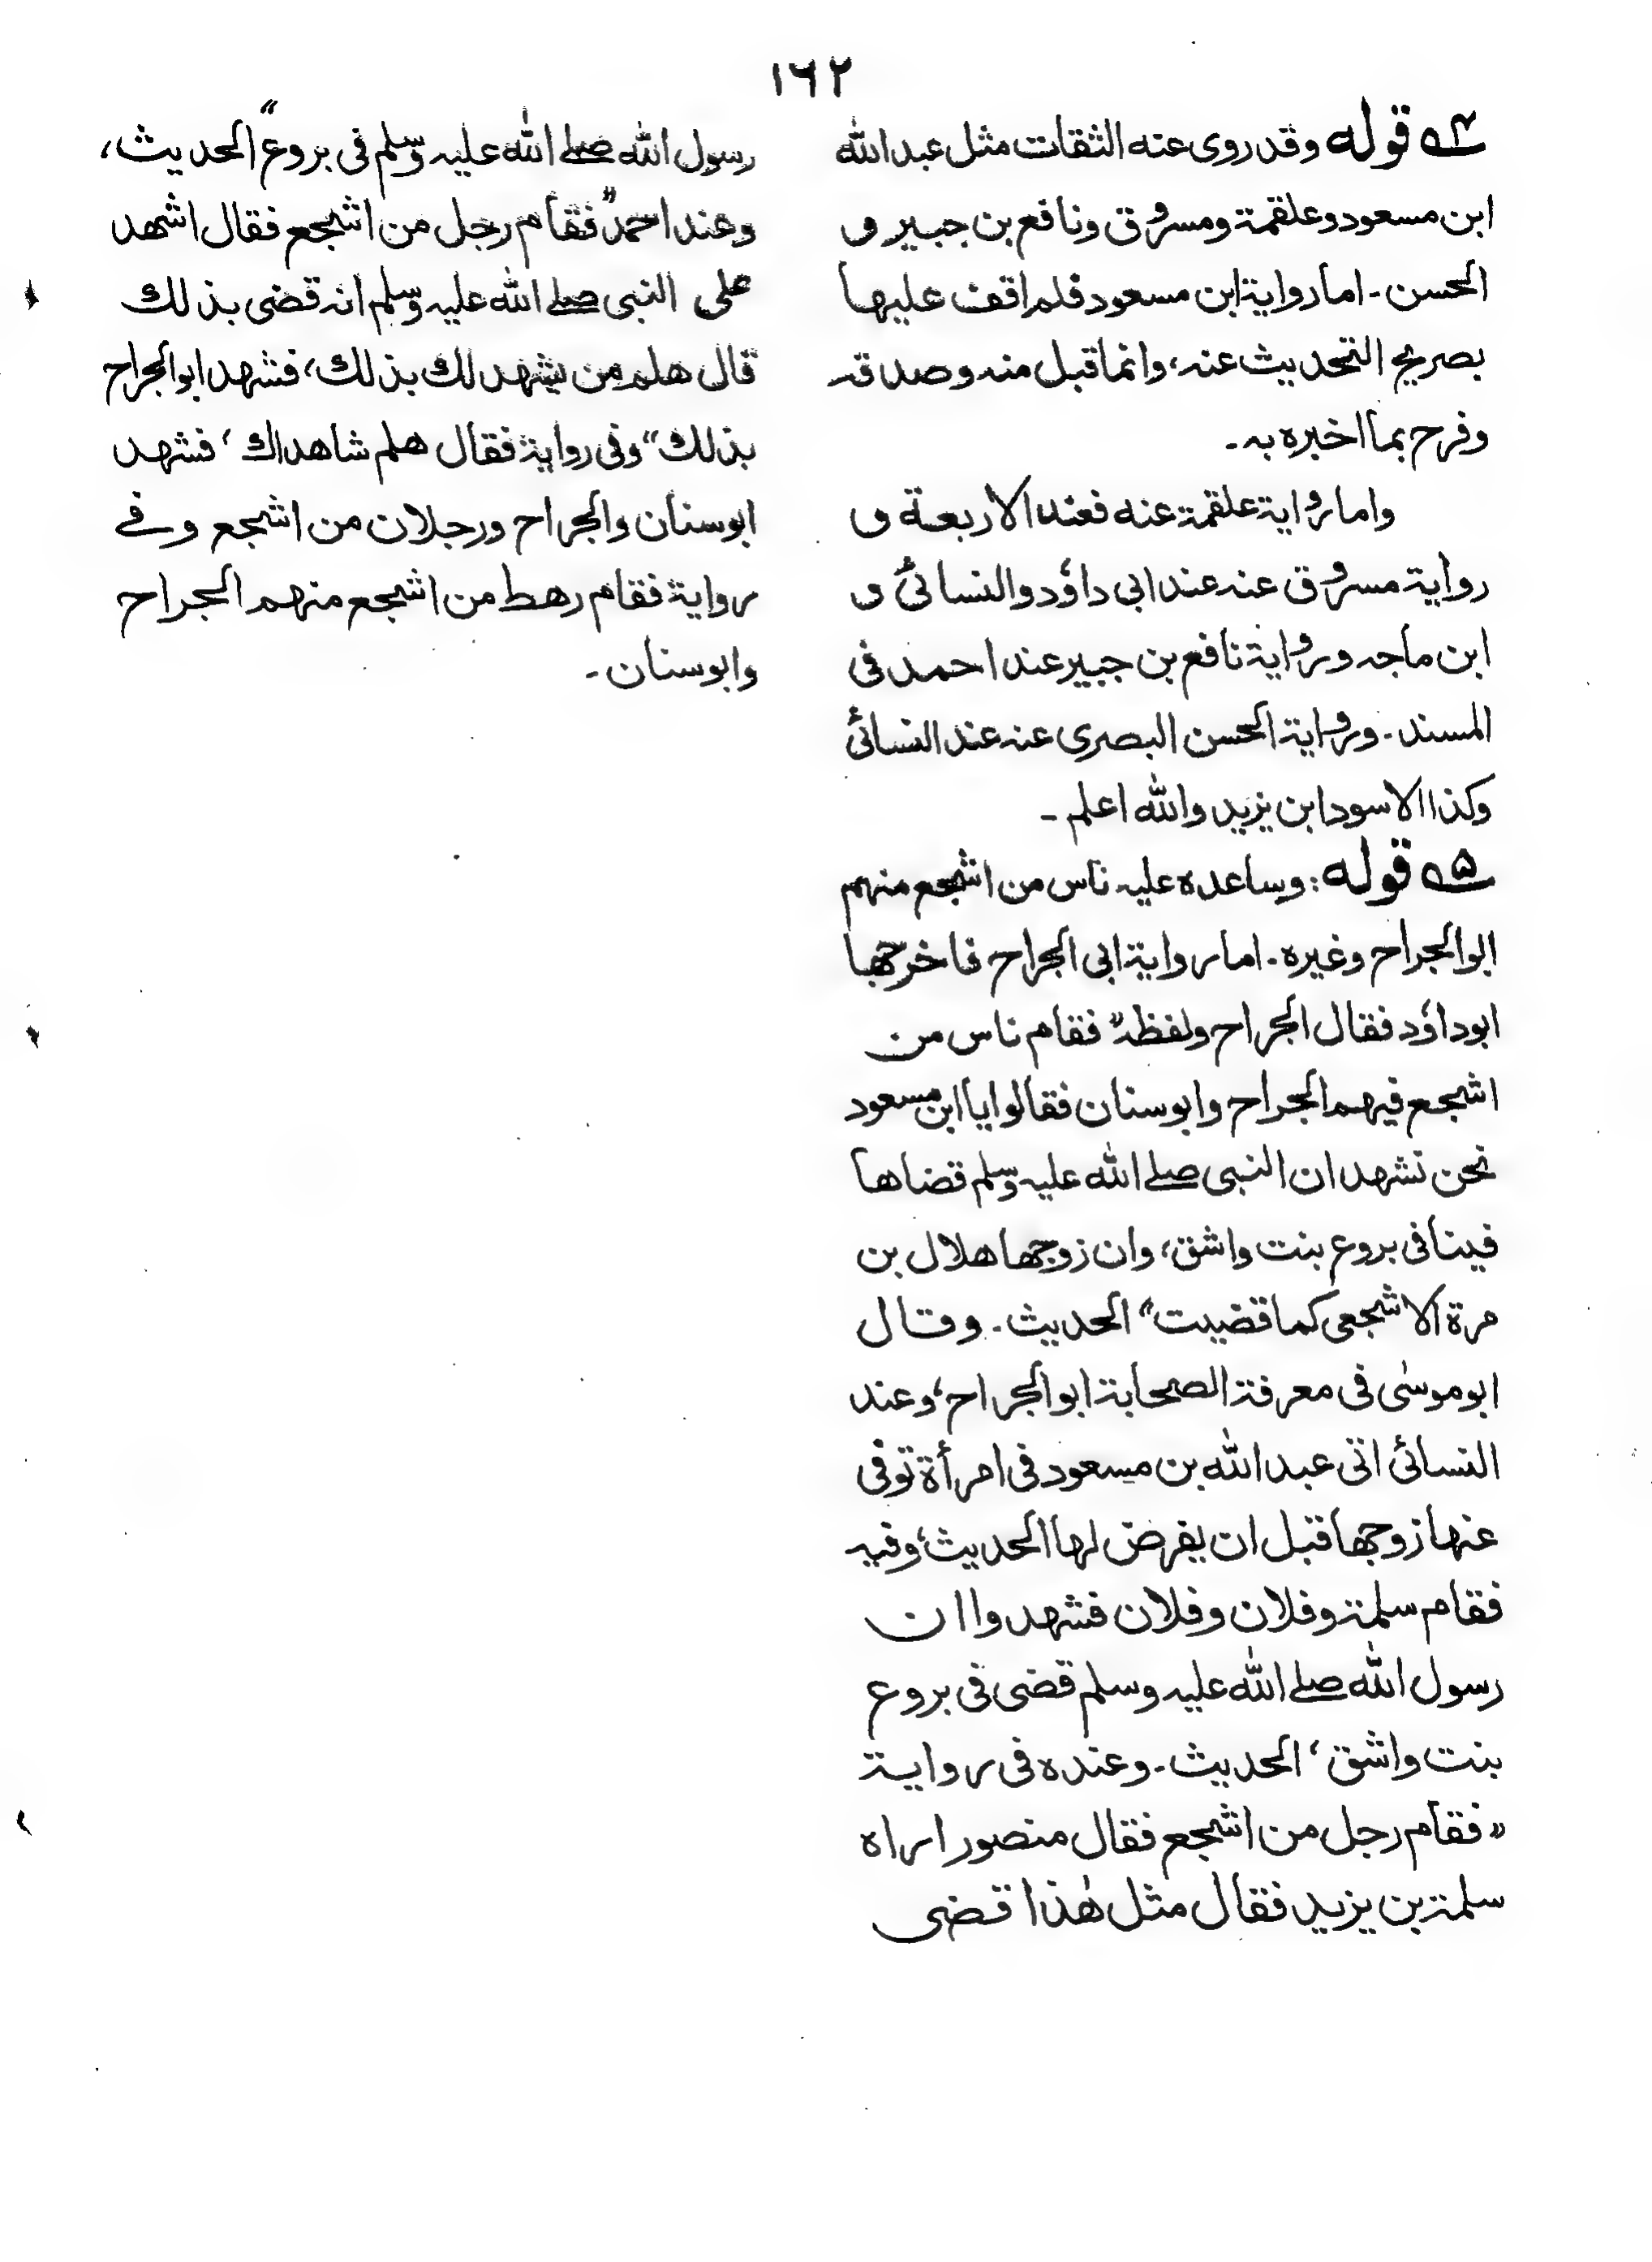 ١٦٢
٤ قوله وقد روى عنه الثقات مثل عبد الله
ابن مسعود وعلقمة ومسروق ونافع بن جبير و
الحسن۔ اما رواية ابن مسعود فلم اقف عليها
بصريح التحديث عنه، وانما قبل منه وصدقه
وفرح بما اخبره به۔
واما رواية علقمة عنه فعند الاربعة و
رواية مسروق عنه عند ابى داؤد والنسائى و
ابن ماجه ورواية نافع بن جبير عند احمد فى
المسند۔ ورواية الحسن البصرى عنه عند النسائى
وكذا الاسود ابن يزيد والله اعلم۔
۵ قوله: وساعده عليه ناس من اشجع منهم
ابو الجراح وغيره۔ اما رواية ابى الجراح فاخرجها
ابوداؤد فقال الجراح ولفظه "فقام ناس من
اشجع فيهم الجراح وابوسنان فقالوا يا ابن مسعود
نحن نشهد ان النبى صلے الله عليه وسلم قضاها
فينا فى بروع بنت واشق، وان زوجها هلال بن
مرة الاشجعى كما قضيت" الحديث۔ وقال
ابوموسٰى فى معرفة الصحابة ابو الجراح، وعند
النسائى اتى عبد الله بن مسعود فى امرأة توفى
عنها زوجها قبل ان يفرض لها الحديث، وفيه
فقام سلمة وفلان وفلان فشهدوا ان
رسول الله صلے الله عليه وسلم قضى فى بروع
بنت واشق، الحديث۔ وعنده فى رواية
"فقام رجل من اشجع فقال منصور اراه
سلمة بن يزيد فقال مثل هٰذا قضى
رسول الله صلے الله عليه وسلم فى بروع" الحديث،
وعند احمد "فقام رجل من اشجع فقال اشهد
على النبى صلے الله عليه وسلم انه قضى بذلك
قال هلم من يشهد لك بذلك، فشهد ابو الجراح
بذلك" وفى رواية فقال هلم شاهداك، فشهد
ابوسنان والجراح ورجلان من اشجع وفے
رواية فقام رهط من اشجع منهم الجراح
وابوسنان۔